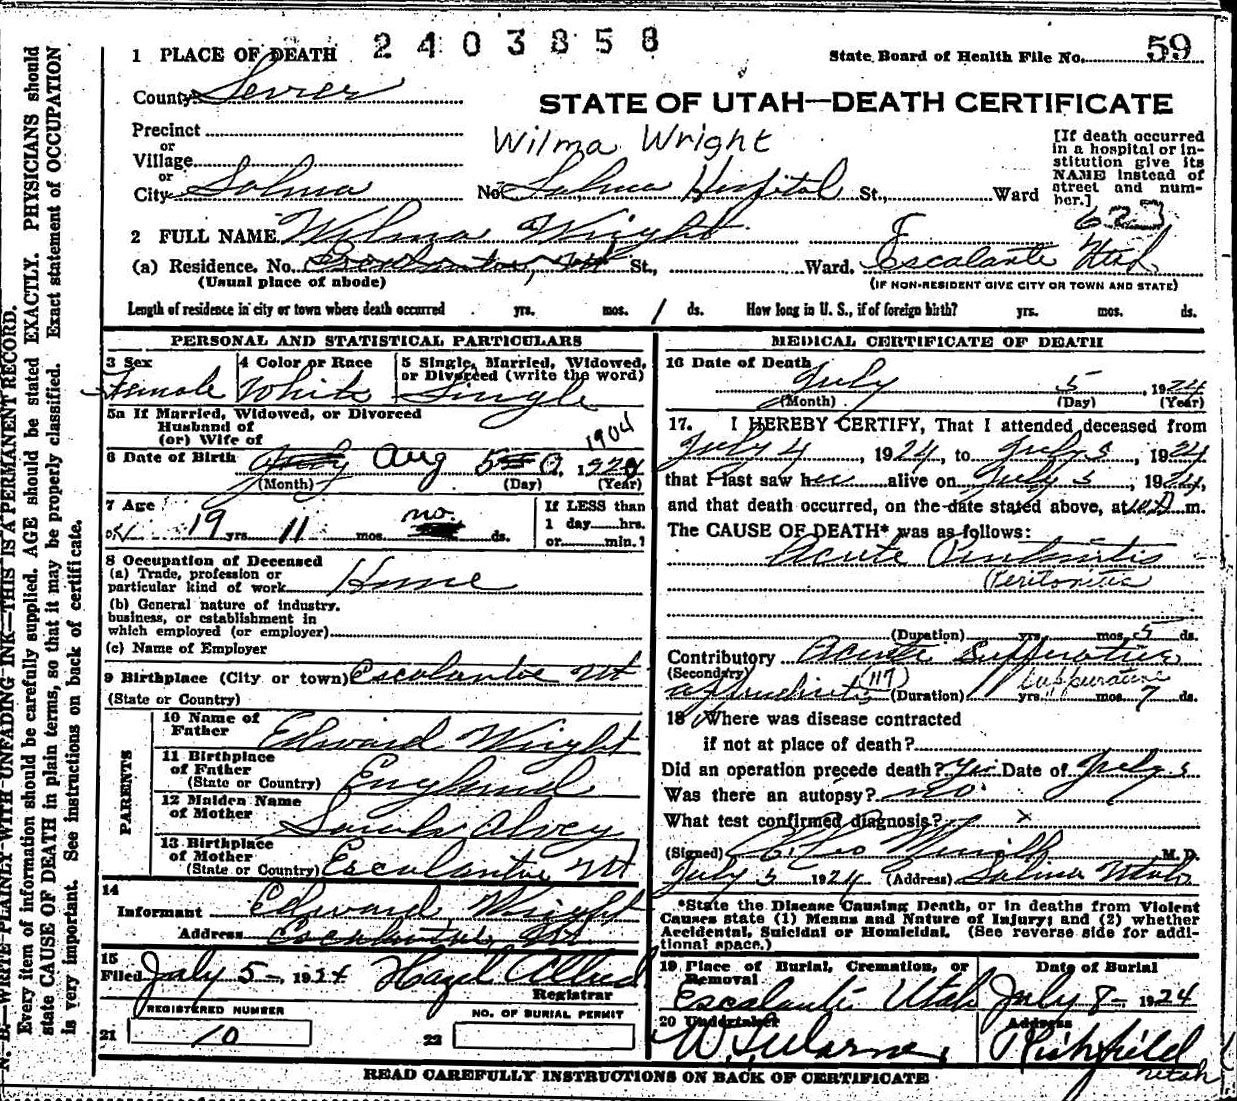 2403858
1 PLACE OF DEATH
State Board of Health File No. 59
County Sevier
STATE OF UTAH—DEATH CERTIFICATE
Precinct
or
Village
or
City Salina
Wilma Wright
No. Salina Hospital St., Ward
[If death occurred
in a hospital or in-
stitution give its
NAME instead of
street and num-
ber.]
623
2 FULL NAME Wilma Wright
(a) Residence. No. St., Ward. Escalante Utah
(Usual place of abode)
(IF NON-RESIDENT GIVE CITY OR TOWN AND STATE)
Length of residence in city or town where death occurred yrs. mos. 1 ds. How long in U. S., if of foreign birth? yrs. mos. ds.
PERSONAL AND STATISTICAL PARTICULARS
3 Sex
Female
4 Color or Race
White
5 Single, Married, Widowed,
or Divorced (write the word)
Single
5a If Married, Widowed, or Divorced
Husband of
(or) Wife of
1904
6 Date of Birth Aug 5
(Month) (Day) (Year)
7 Age
19 yrs. 11 mos. no ds.
If LESS than
1 day hrs.
or min.?
8 Occupation of Deceased
(a) Trade, profession or
particular kind of work Home
(b) General nature of industry,
business, or establishment in
which employed (or employer)
(c) Name of Employer
9 Birthplace (City or town) Escalante Ut
(State or Country)
PARENTS
10 Name of
Father Edward Wright
11 Birthplace
of Father
(State or Country) England
12 Maiden Name
of Mother Sarah Alvey
13 Birthplace
of Mother
(State or Country) Escalante Ut
14
Informant Edward Wright
Address Escalante, Ut
15
Filed July 5- 1924 Hazel Allred
Registrar
REGISTERED NUMBER
21 10
NO. OF BURIAL PERMIT
22
MEDICAL CERTIFICATE OF DEATH
16 Date of Death
July 5, 1924
(Month) (Day) (Year)
17. I HEREBY CERTIFY, That I attended deceased from
July 4, 1924, to July 5, 1924
that I last saw her alive on July 5, 1924,
and that death occurred, on the date stated above, at m.
The CAUSE OF DEATH* was as follows:
Acute
Peritonitis
(Duration) yrs. mos. 5 ds.
Contributory Acute Suppurative
(Secondary) (117) Suppurative
appendicitis (Duration) yrs. mos. 7 ds.
18 Where was disease contracted
if not at place of death?
Did an operation precede death? Yes Date of July 5
Was there an autopsy? no
What test confirmed diagnosis? x
(Signed) M. D.
July 5 1924 (Address) Salina Utah
*State the Disease Causing Death, or in deaths from Violent
Causes state (1) Means and Nature of Injury; and (2) whether
Accidental, Suicidal or Homicidal. (See reverse side for addi-
tional space.)
19 Place of Burial, Cremation, or
Removal
Escalante Utah
Date of Burial
July 8- 1924
20 Undertaker
Address
Richfield
Utah
READ CAREFULLY INSTRUCTIONS ON BACK OF CERTIFICATE
N. B.—WRITE PLAINLY WITH UNFADING INK—THIS IS A PERMANENT RECORD.
Every item of information should be carefully supplied. AGE should be stated EXACTLY. PHYSICIANS should
state CAUSE OF DEATH in plain terms, so that it may be properly classified. Exact statement of OCCUPATION
is very important. See instructions on back of certificate.